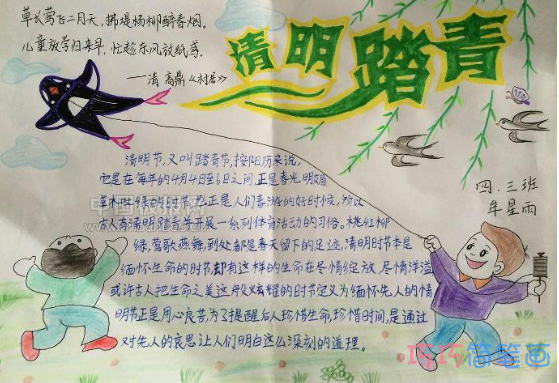 草长莺飞二月天，拂堤杨柳醉春烟。
儿童放学归来早，忙趁东风放纸鸢。
——清 高鼎《村居》
清明踏青
四.三班
牟星雨
清明节，又叫踏青节，按阳历来说，
它是在每年的4月4日至6日之间，正是春光明媚
草木吐绿的时节，也正是人们春游的好时候，所以
古人有清明踏青并开展一系列体育活动的习俗。桃红柳
绿，莺歌燕舞，到处都是春天留下的足迹。清明时节本是
缅怀生命的时节，却有这样的生命在尽情绽放，尽情洋溢
或许古人把生命之美这般炫耀的时节定义为缅怀先人的清
明节正是用心良苦，为了提醒后人珍惜生命，珍惜时间，是通过
对先人的哀思让人们明白这么深刻的道理。
中国板报网
巧巧简笔画